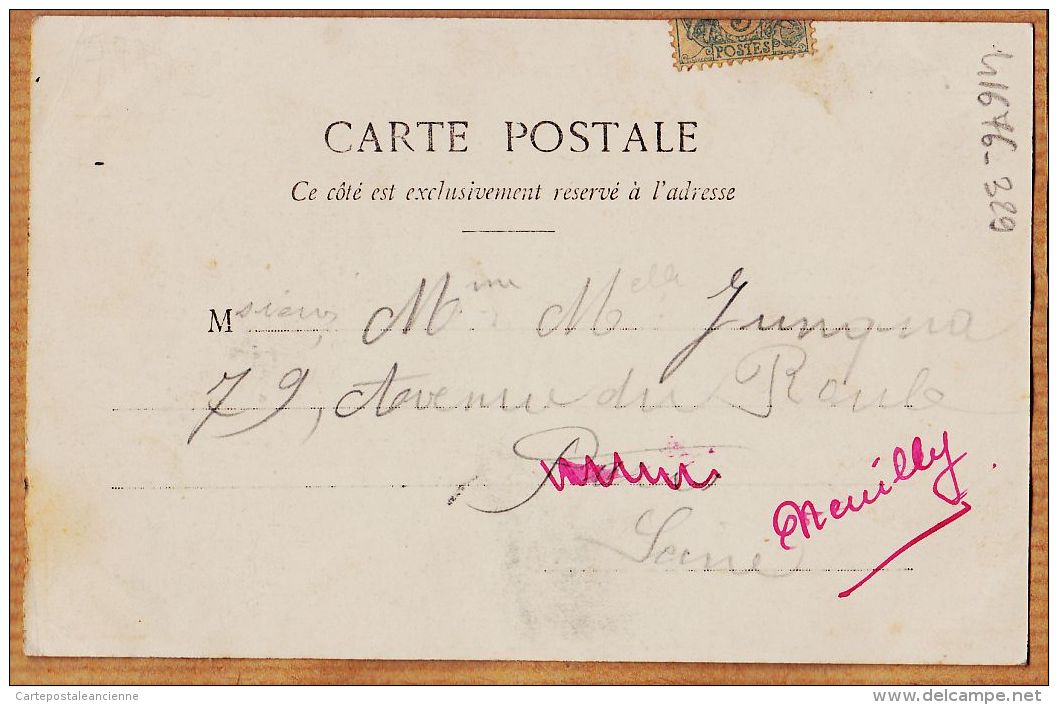 POSTES
41676-389
CARTE POSTALE
Ce côté est exclusivement reservé à l'adresse
Msieur, Mme Melle Jungua
79, Avenue du Roule
Neuilly
Seine
Cartepostaleancienne
delcampe.net